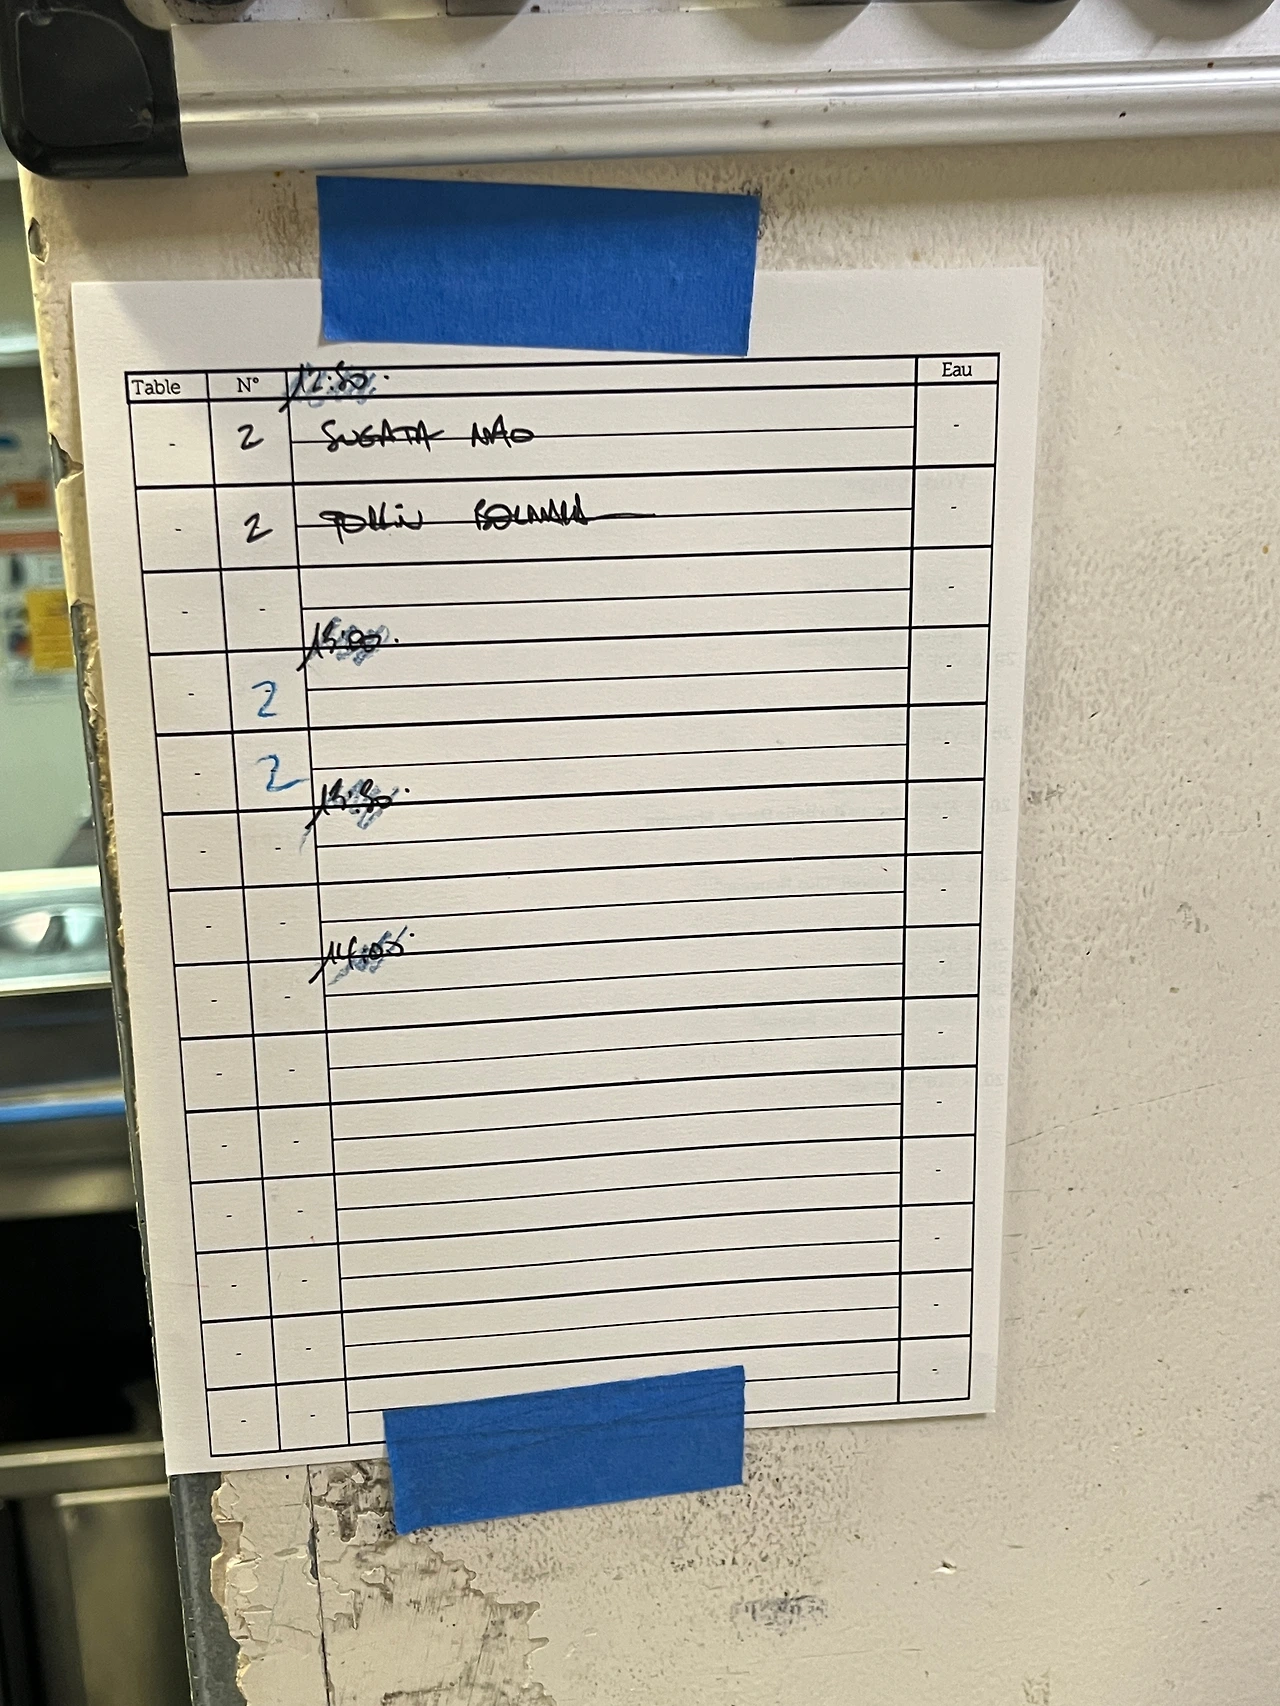 Table N° 12:30. Eau
- 2 SUGATA NAO -
- 2 -
- - -
13:00.
- 2 -
- 2 -
13:30.
- - -
- - -
14:00.
- - -
- - -
- - -
- - -
- - -
- - -
- -